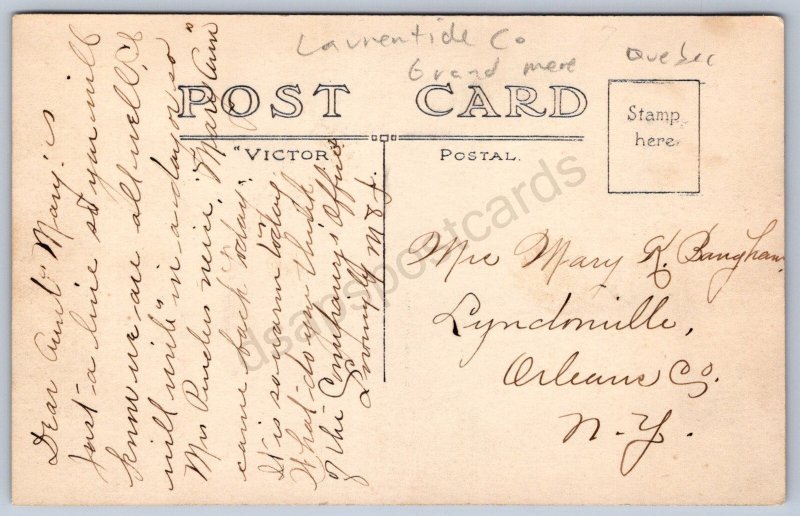 Laurentide Co
Grand mere Quebec
POST CARD
"VICTOR POSTAL.
Stamp
here.
Dear Aunt Mary:
Just a line so you will
know we are all well, I
will write in a day or so
Mrs neice, "Mary Ann"
came back today.
It is so warm today
What do you think
of the Company's Office
Lovingly M &
Mrs Mary K. Bangham
Lyndonville,
Orleans Co.
N.Y.
dsapspostcards